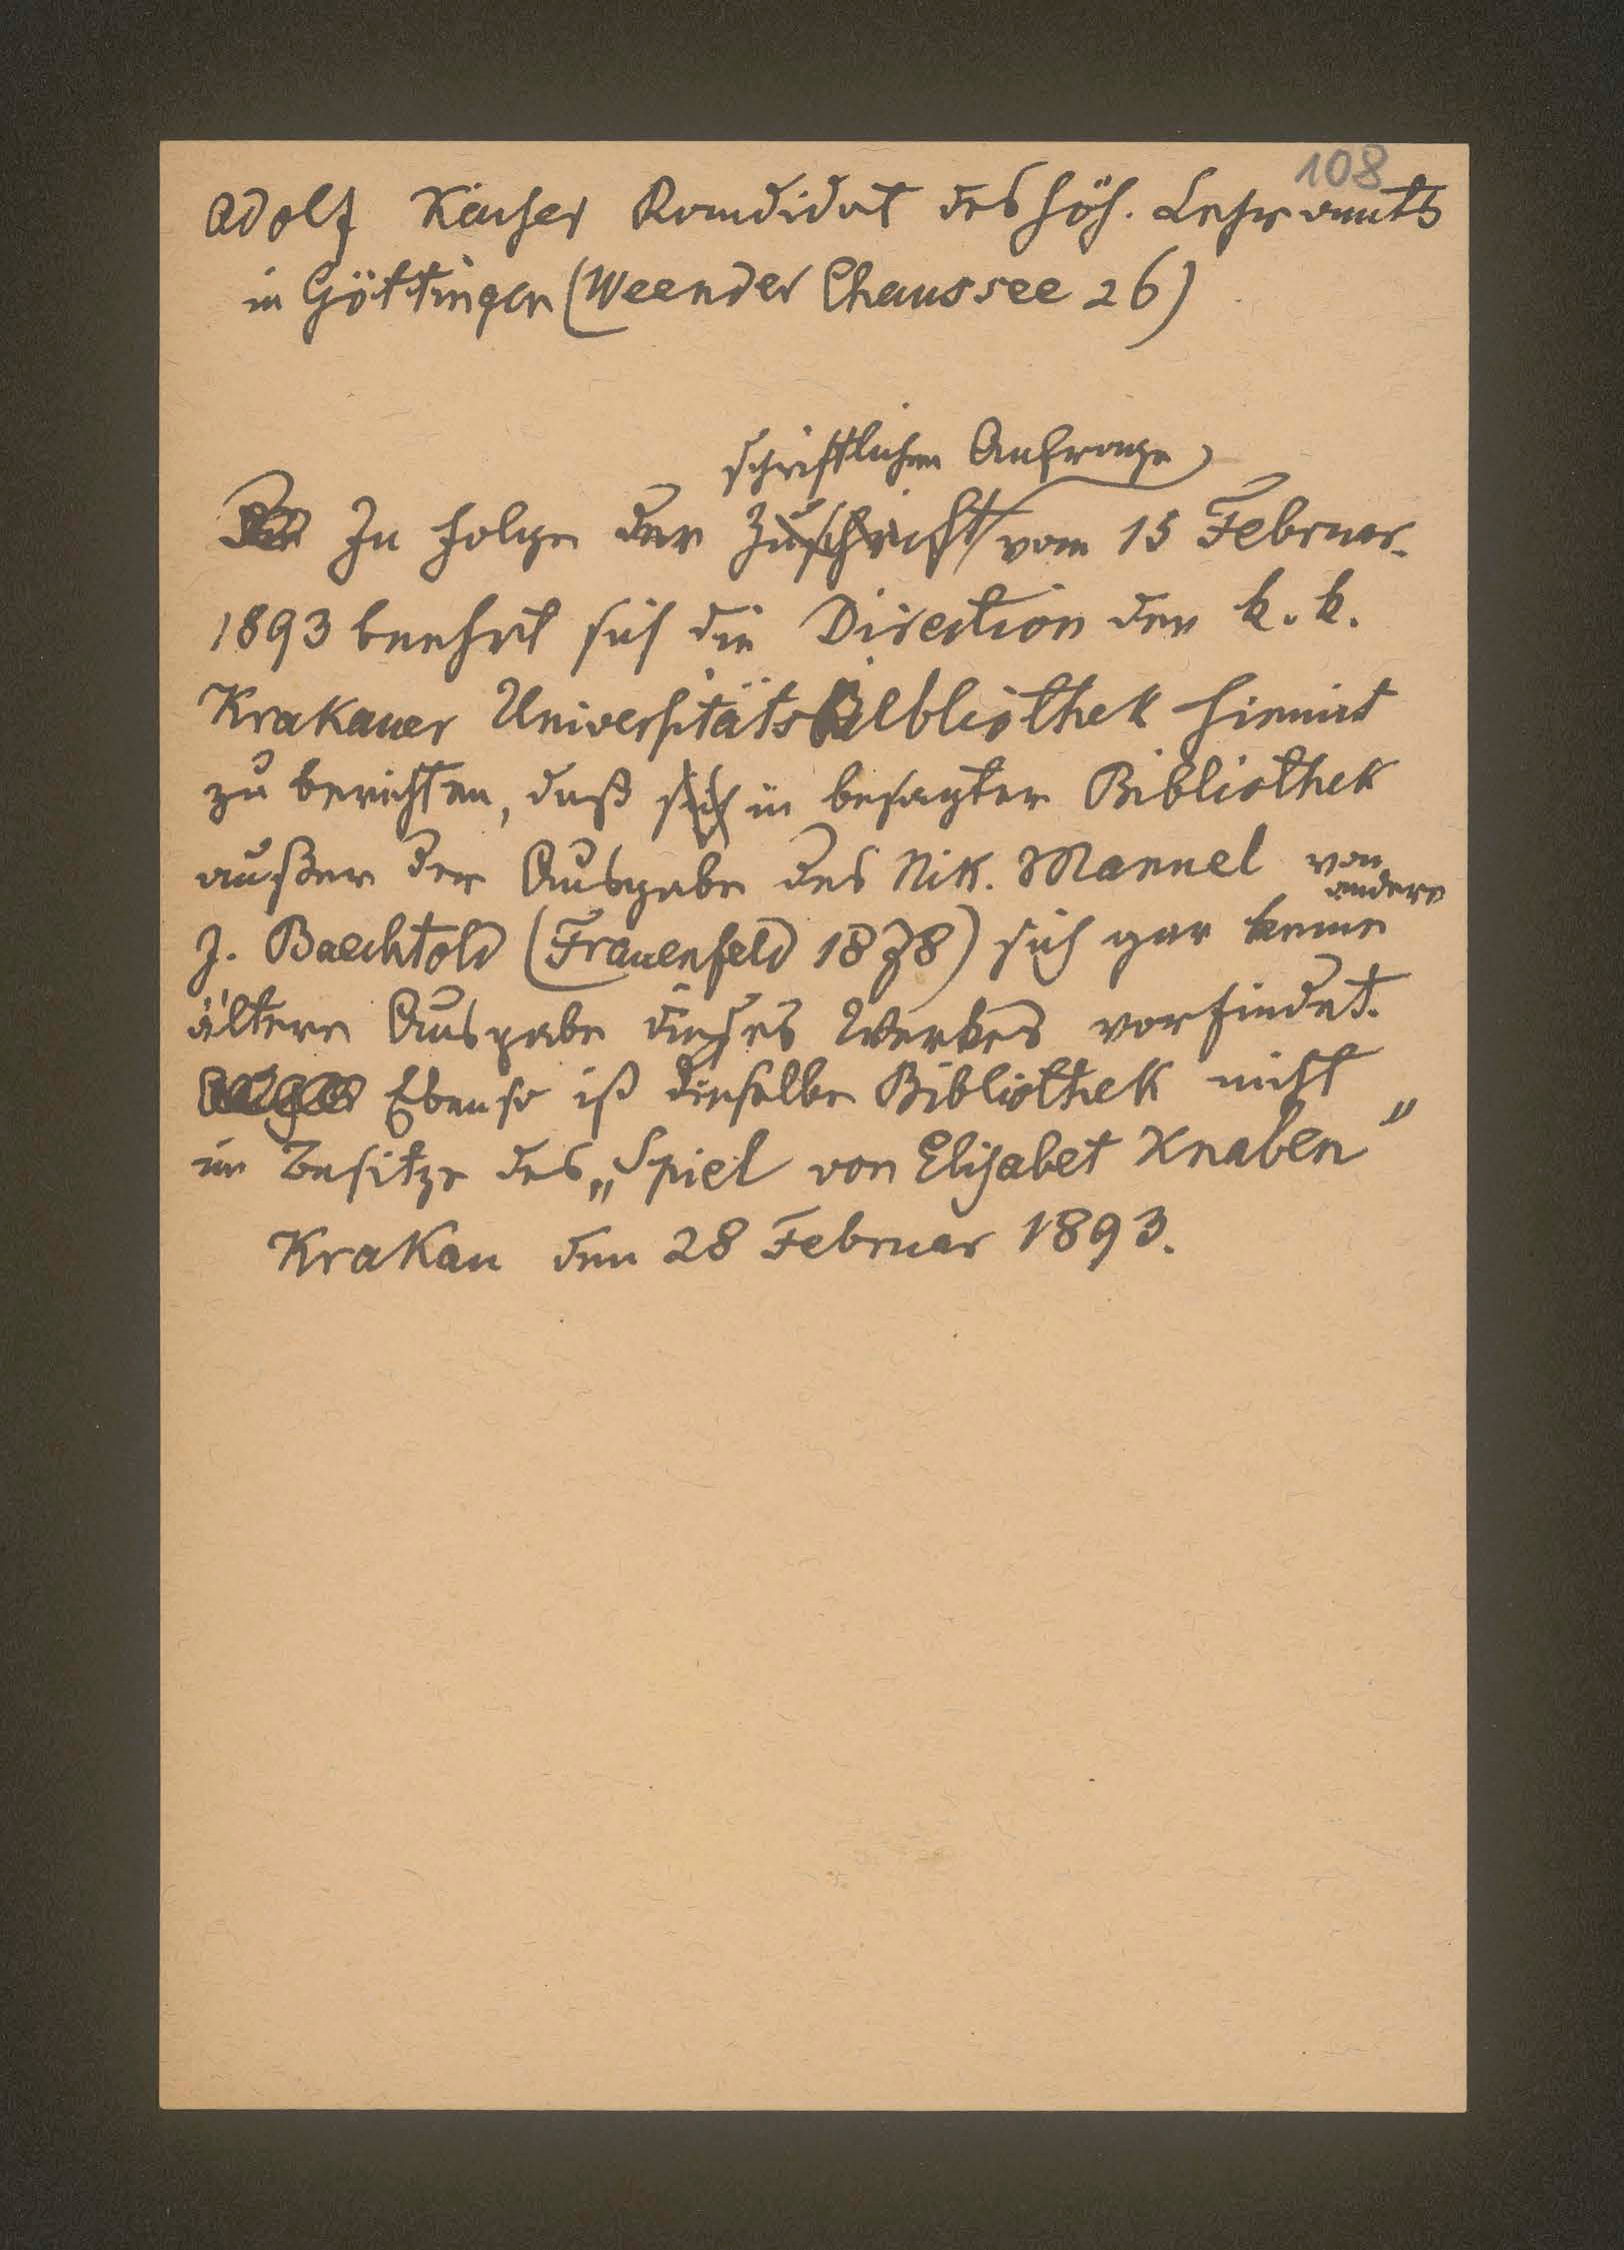 108
Adolf Kaiser Kandidat des höh. Lehramts
in Göttingen (Weender Chaussee 26)
schriftlichen Anfrage
In Folge der Zuschrift vom 15 Februar
1893 beehrt sich die Direction der k. k.
Krakauer Universitäts Bibliothek hiemit
zu berichten, daß sich in besagter Bibliothek
außer der Ausgabe des Nik. Manuel von
andere
J. Baechtold (Frauenfeld 1878) sich gar keine
ältere Ausgabe dieses Werkes vorfindet.
Ebenso ist dieselbe Bibliothek nicht
im Besitze des „Spiel von Elisabet Knaben"
Krakau den 28 Februar 1893.